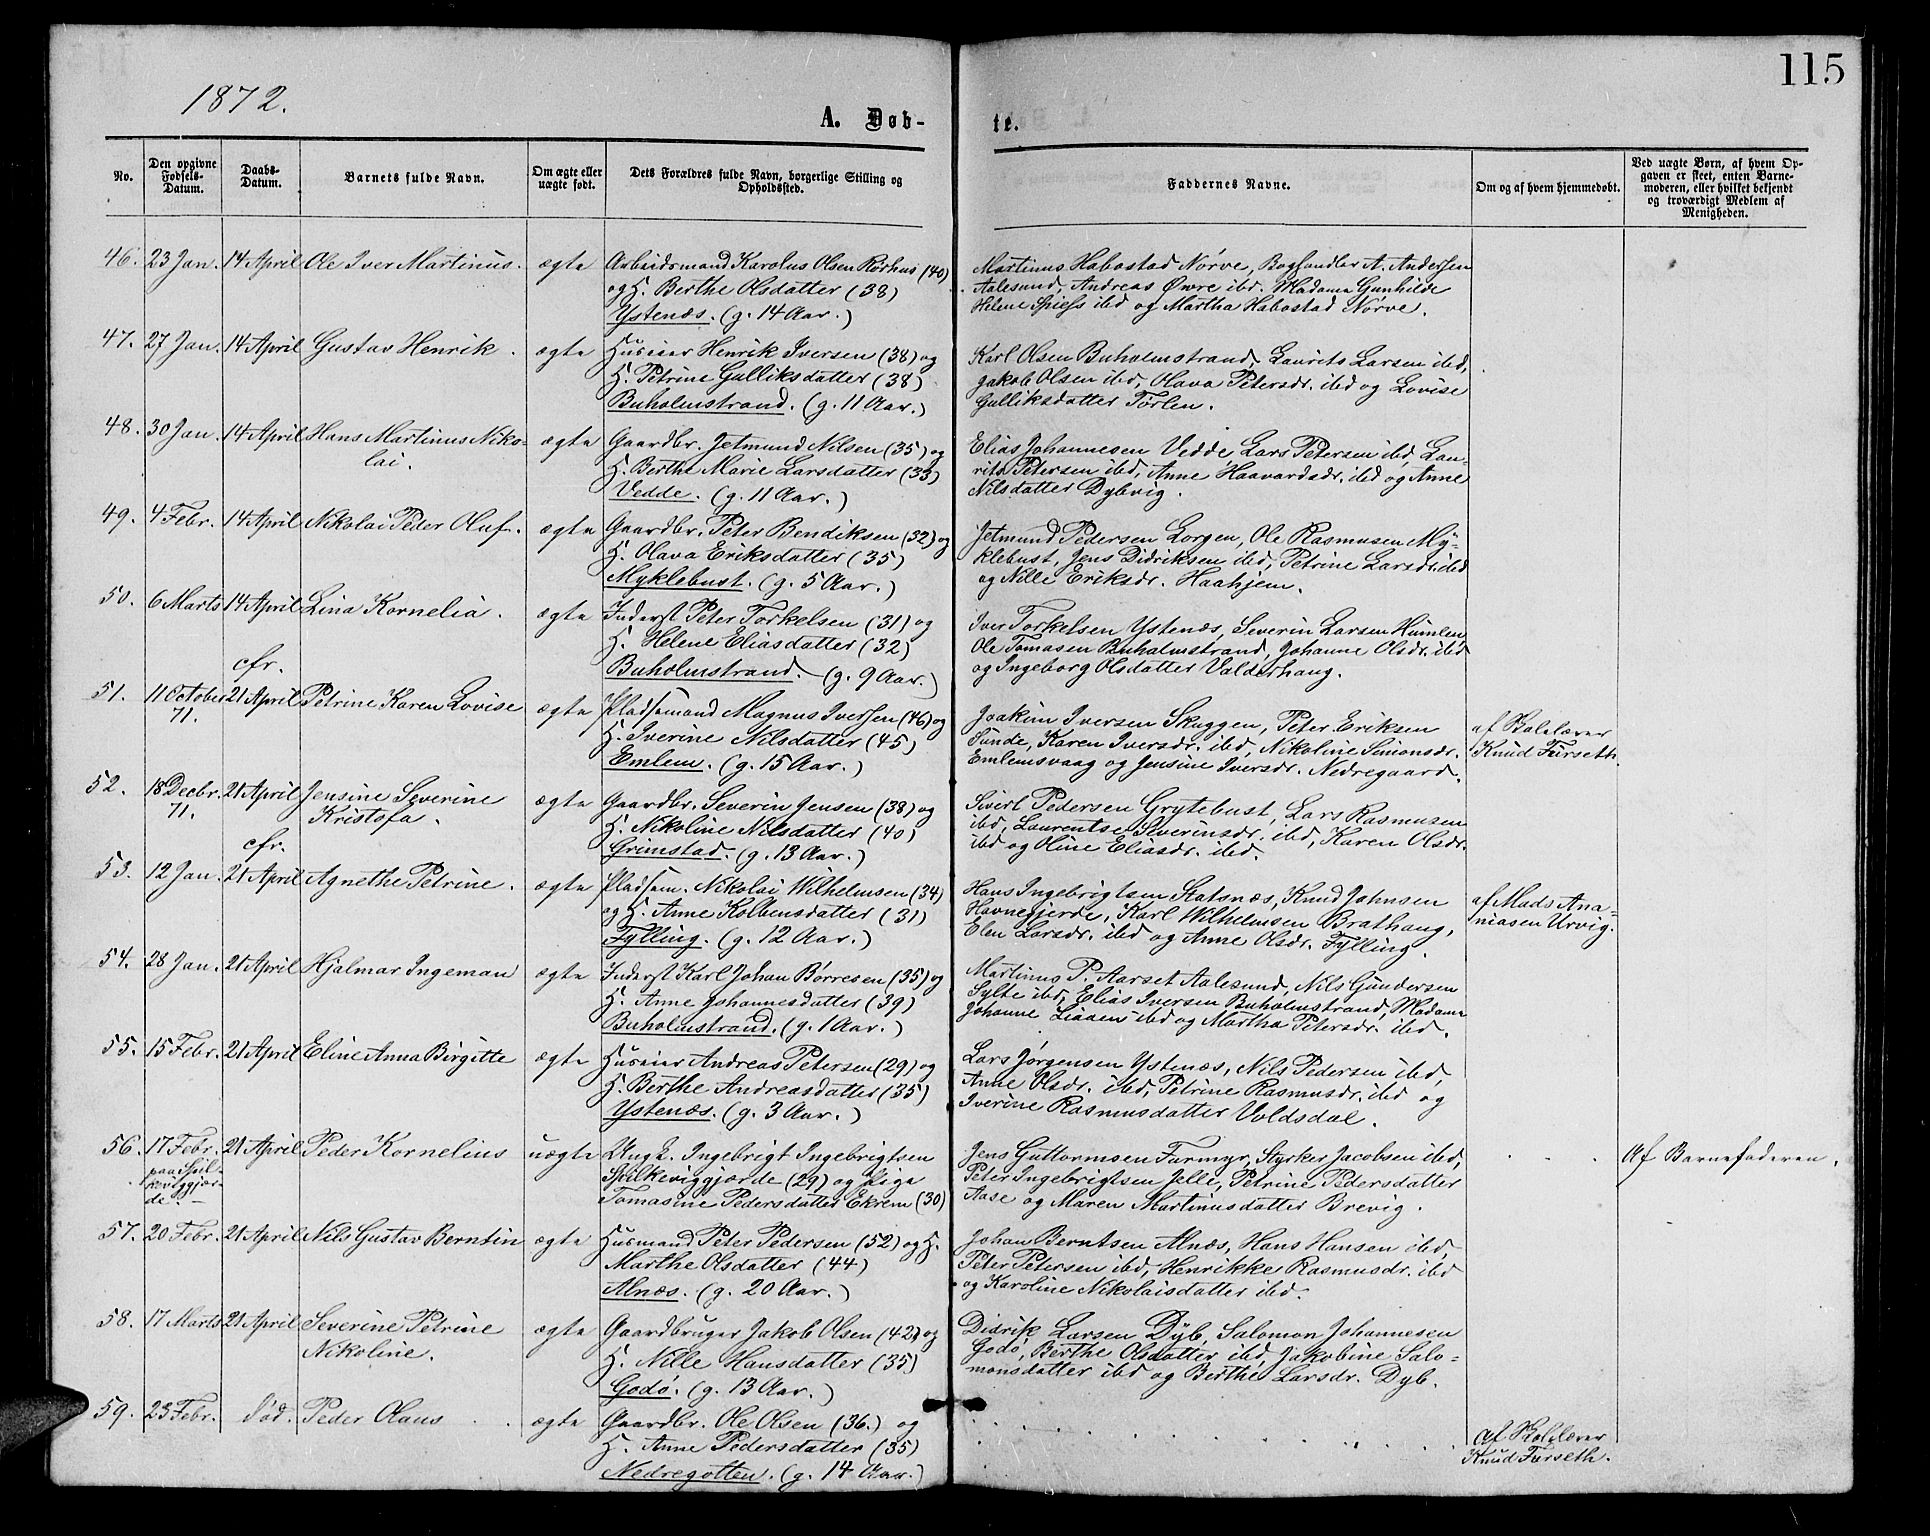 115
1872.
A. Døb-
te.
No.
Den opgivne Fødsels-Datum.
Daabs-Datum.
Barnets fulde Navn.
Om ægte eller uægte født.
Dets Forældres fulde Navn, borgerlige Stilling og Opholdssted.
Faddernes Navne.
Om og af hvem hjemmedøbt.
Ved uægte Børn, af hvem Opgaven er skeet, enten Barnemoderen, eller hvilket bekjendt og troværdigt Medlem af Menigheden.
46. 23 Jan. 14 April Ole Iver Martinus. ægte Arbeidsmand Karolus Olsen Rørhus (40)
og H. Berthe Olsdatter (38)
Ystenæs. (g. 14 Aar.)
Martinus Habostad Nørve, Boghandler A. Andersen
Aalesund, Andreas Øvre ibd. Madame Gunhilde
Helene Spiess ibd og Martha Habostad Nørve.
47. 27 Jan. 14 April Gustav Henrik. ægte Huseier Henrik Iversen (38) og
H. Petrine Gulliksdatter (38)
Buholmstrand. (g. 11 Aar.)
Karl Olsen Buholmstrand, Laurits Larsen ibd,
Jakob Olsen ibd, Olava Petersdr. ibd og Lovise
Gulliksdatter Tørlen.
48. 30 Jan. 14 April Hans Martinus Niko-
lai. ægte Gaardbr. Jetmund Nilsen (35) og
H. Berthe Marie Larsdatter (33)
Vedde. (g. 11 Aar.)
Elias Johannesen Vedde, Lars Petersen ibd, Lau-
rits Petersen ibd, Anne Haavardsdr. ibd og Anne
Nilsdatter Dybvig.
49. 4 Febr. 14 April Nikolai Peder Oluf. ægte Gaardbr. Peter Bendiksen (32) og
H. Olava Eriksdatter (35)
Myklebust. (g. 5 Aar.)
Jetmund Pedersen Lorgen, Ole Rasmusen My-
klebust, Jens Didriksen ibd, Petrine Larsdr. ibd
og Nille Eriksdr. Haahjem.
50. 6 Marts 14 April Lina Kornelia. ægte Inderst Peter Torkelsen (31) og
H. Helene Eliasdatter (32)
Buholmstrand. (g. 9 Aar.)
Iver Torkelsen Ystenæs, Severin Larsen Humlen
Ole Tomasen Buholmstrand, Johanne Olsdr. ibd
og Ingeborg Olsdatter Valderhaug.
cfr.
51. 11 October 71. 21 April Petrine Karen Lovise ægte Pladsemand Magnus Iversen (46) og
H. Iverine Nilsdatter (45)
Emlem. (g. 15 Aar.)
Joakim Iversen Skuggen, Peter Eriksen
Sunde, Karen Iversdr. ibd, Nikoline Simonsdr.
Emlemsvaag og Jensine Iversdr. Nedregaard.
af Skolelærer
Knud Furseth.
52. 18 Decbr. 71. 21 April Jensine Severine
Kristofa. ægte Gaardbr. Severin Jensen (38) og
H. Nikoline Nilsdatter (40)
Grimstad. (g. 13 Aar.)
Sivert Pedersen Grytebust, Lars Rasmusen
ibd, Laurentse Severinsdr. ibd, Karen Olsdr.
ibd og Oline Eliasdr. ibd.
cfr.
53. 12 Jan. 21 April Agnethe Petrine. ægte Pladsem. Nikolai Wilhelmsen (34)
og H. Anne Kolbensdatter (31)
Fylling. (g. 12 Aar.)
Hans Ingebrigtsen Statsnæs, Knud Johnsen
Havnegjerde, Karl Wilhelmsen Brathaug,
Elen Larsdr. ibd og Anne Olsdr. Fylling.
af Mads Ana-
niasen Urvig.
54. 28 Jan. 21 April Hjalmar Ingeman ægte Inderst Karl Johan Børresen (35) og
H. Anne Johannesdatter (39)
Buholmstrand. (g. 1 Aar.)
Martinus P. Aarset Aalesund, Nils Gundersen
Sylte ibd, Elias Iversen Buholmstrand, Madame
Johanne Liaaen ibd og Martha Petersdr. ibd.
55. 15 Febr. 21 April Eline Anna Birgitte ægte Huseier Andreas Petersen (29) og
H. Berthe Andreasdatter (35)
Ystenæs. (g. 3 Aar.)
Lars Jørgensen Ystenæs, Nils Pedersen ibd,
Anne Olsdr. ibd, Petrine Rasmusdr. ibd og
Iverine Rasmusdatter Voldsdal.
56. 17 Febr. paa Spil-
keviggjær-
de. 21 April Peder Kornelius uægte Ungk. Ingebrigt Ingebrigtsen
Spilkeviggjærde (29) og Pige
Tomasine Pedersdatter Ekrem (30)
Jens Guttormsen Furmyr, Styrker Jacobsen ibd,
Peter Ingebrigtsen Jelle, Petrine Pedersdatter
Aase og Maren Martinusdatter Brevig.
Af Barnefaderen.
57. 20 Febr. 21 April Nils Gustav Berntin ægte Husmand Peter Pedersen (52) og H.
Marthe Olsdatter (44)
Alnæs. (g. 20 Aar.)
Johan Berntsen Alnæs, Hans Hansen ibd,
Peter Petersen ibd, Henrikke Rasmusdr. ibd
og Karoline Nikolaisdatter ibd.
58. 17 Marts 21 April Severine Petrine
Nikoline. ægte Gaardbruger Jakob Olsen (42) og
H. Nille Hansdatter (35)
Godø. (g. 13 Aar.)
Didrik Larsen Dyb, Salomon Johannesen
Godø, Berthe Olsdatter ibd, Jakobine Salo-
monsdatter ibd og Berthe Larsdr. Dyb.
59. 23 Febr. død. Peder Olaus ægte Gaardbr. Ole Olsen (36.) og
H. Anne Pedersdatter (35)
Nedregotten. (g. 14 Aar.)
af Skolelærer
Knud Furseth.